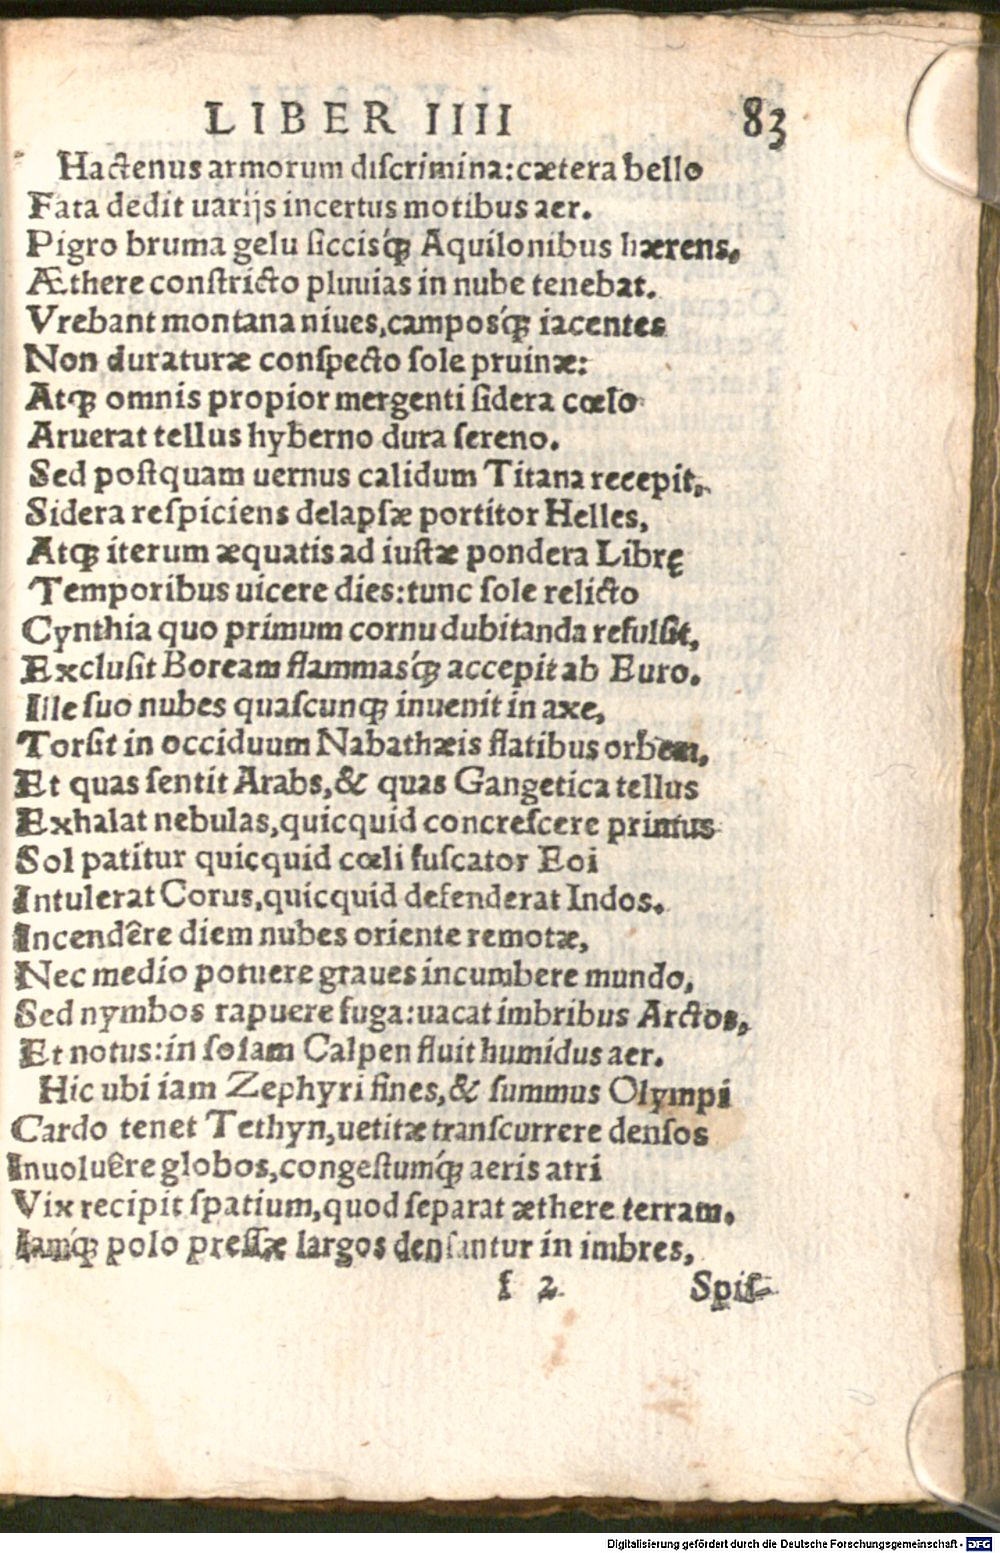 LIBER IIII 83
Hactenus armorum discrimina:cætera bello
Fata dedit uarijs incertus motibus aer.
Pigro bruma gelu ſiccisq́ꝫ Aquilonibus hærens,
Æthere conſtricto pluuias in nube tenebat.
Vrebant montana niues,camposq́ꝫ iacentes
Non duraturæ conſpecto ſole pruinæ:
Atqꝫ omnis propior mergenti ſidera cœlo
Aruerat tellus hyberno dura ſereno.
Sed poſtquam uernus calidum Titana recepit,
Sidera reſpiciens delapſæ portitor Helles,
Atqꝫ iterum æquatis ad iuſtæ pondera Librę
Temporibus uicere dies:tunc ſole relicto
Cynthia quo primum cornu dubitanda refulſit,
Excluſit Boream flammasq́ꝫ accepit ab Euro.
Ille ſuo nubes quaſcunqꝫ inuenit in axe,
Torſit in occiduum Nabathæis flatibus orbem,
Et quas ſentit Arabs,& quas Gangetica tellus
Exhalat nebulas,quicquid concreſcere primus
Sol patitur quicquid cœli fuſcator Eoi
Intulerat Corus,quicquid defenderat Indos.
Incendêre diem nubes oriente remotæ,
Nec medio potuere graues incumbere mundo,
Sed nymbos rapuere fuga:uacat imbribus Arctos,
Et notus:in ſolam Calpen fluit humidus aer.
Hic ubi iam Zephyri fines,& ſummus Olympi
Cardo tenet Tethyn,uetitæ tranſcurrere denſos
Inuoluêre globos,congeſtumq́ꝫ aeris atri
Vix recipit ſpatium,quod ſeparat æthere terram.
Iamq́ꝫ polo preſſæ largos denſantur in imbres,
f 2 Spiſ-
Digitalisierung gefördert durch die Deutsche Forschungsgemeinschaft - DFG